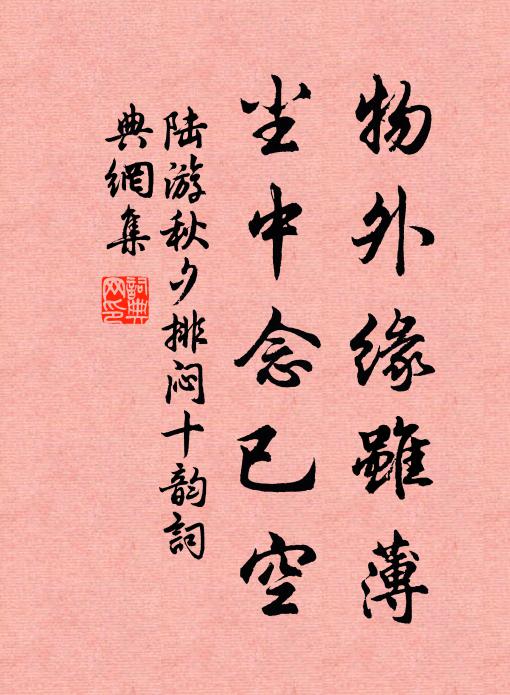 物外缘雖薄
尘中念已空
陆游秋夕排闷十韵詞
典網集
詞典
网印